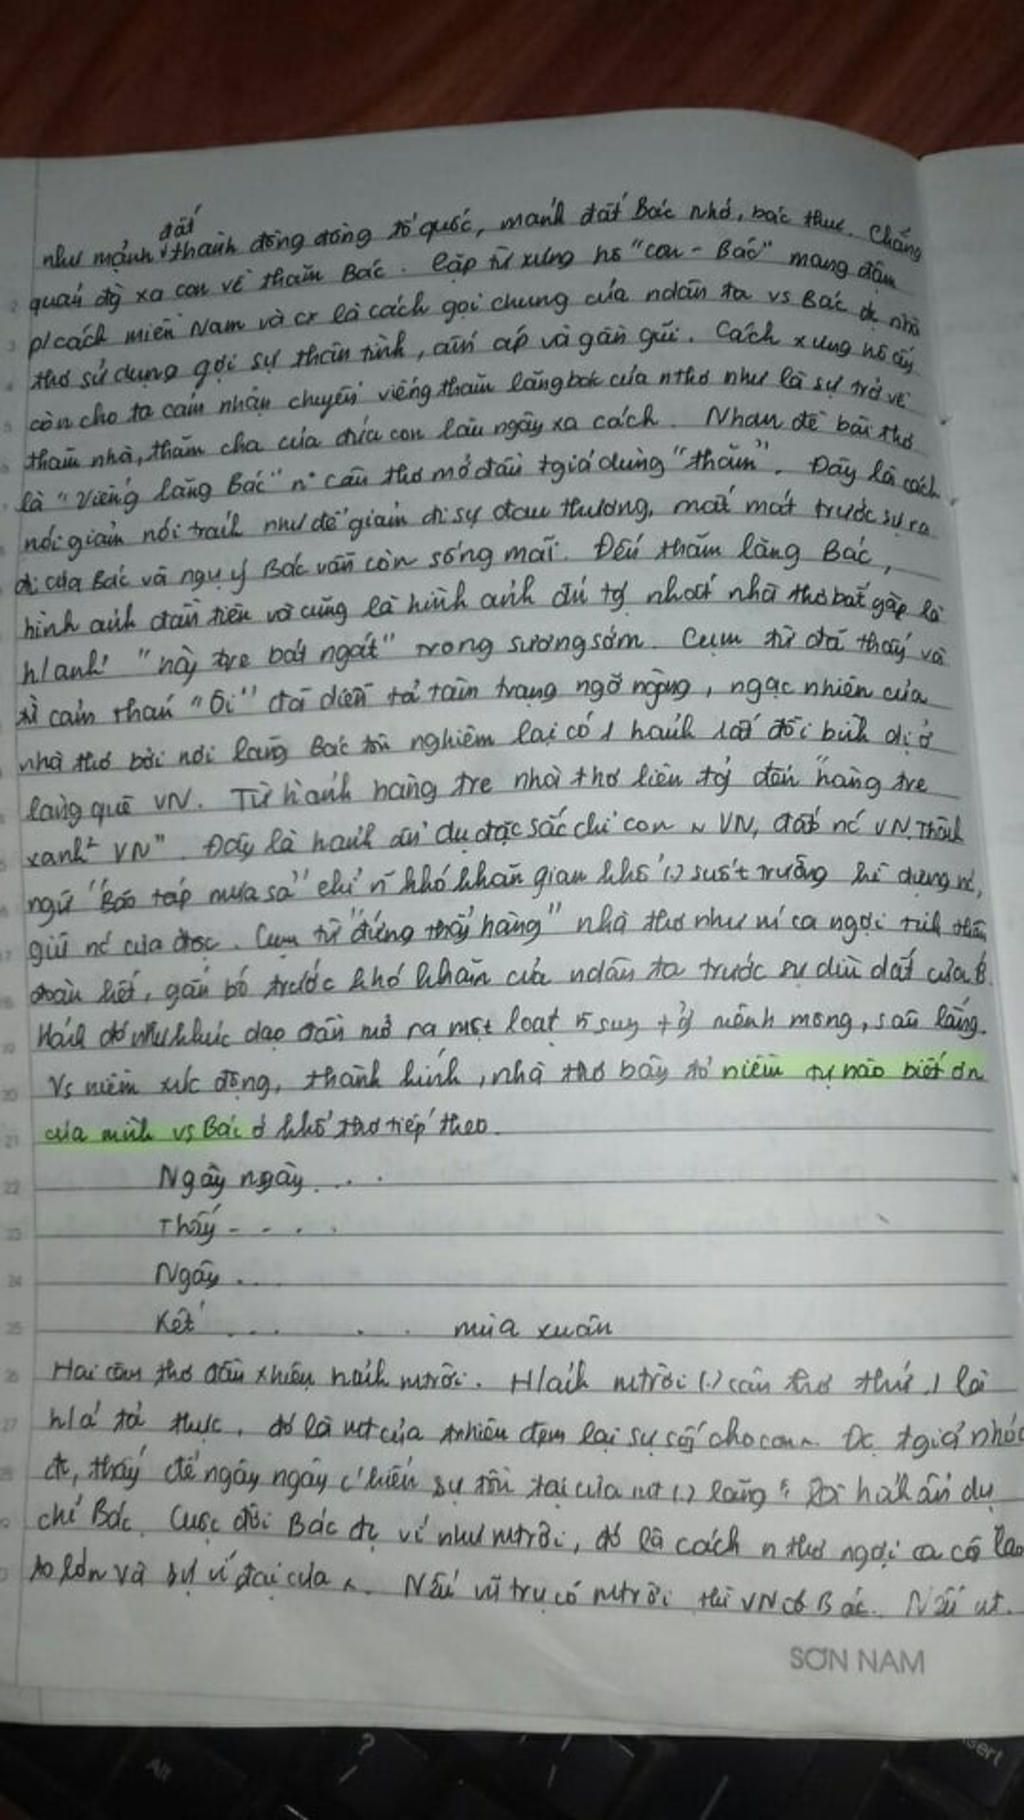 đất
như mảnh thành đồng đồng tổ quốc, mảnh đất Bác nhớ, bác thương. Chẳng
quan độ xa con về thăm Bác. Cặp từ xưng hô "con - Bác" mang đậm
p/cách miền Nam và cx là cách gọi chung của ndân ta vs Bác đc nhà
thơ sử dụng gợi sự thân tình, ấm áp và gần gũi. Cách xưng hô ấy
còn cho ta cảm nhận chuyến viếng thăm lăng bác của nthơ như là sự trở về
thăm nhà, thăm cha của đứa con lâu ngày xa cách. Nhan đề bài thơ
là "Viếng lăng Bác" n` câu thơ mở đầu tgiả dùng "thăm". Đây là cách
nói giảm nói tránh như để giảm đi sự đau thương, mất mát trước sự ra
đi của Bác và ngụ ý Bác vẫn còn sống mãi. Đến thăm lăng Bác,
hình ảnh đầu tiên và cũng là hình ảnh ấn tg nhất nhà thơ bắt gặp là
h/ảnh "hàng tre bát ngát" trong sương sớm. Cụm từ đã thấy và
từ cảm thán "Ôi" đã diễn tả tâm trạng ngỡ ngàng, ngạc nhiên của
nhà thơ bởi nơi lăng Bác tôn nghiêm lại có 1 hảnh rất đỗi bình dị ở
làng quê VN. Từ hảnh hàng tre nhà thơ liên tg đến "hàng tre
xanh² VN". Đây là hảnh ẩn dụ đặc sắc chỉ con ~ VN, đất nc VN. Thành
ngữ "Bão táp mưa sa" chỉ n~ khó khăn gian khổ (.) suốt trường kì dựng nc,
giữ nc của dtọc. Cụm từ "đứng thẳng hàng" nhà thơ như ca ngợi tinh thần
đoàn kết, gắn bó trước khó khăn của ndân ta trước sự dìu dắt của B.
Hảnh đó như khúc dạo đầu mở ra một loạt n~ suy tg mênh mông, sâu lắng.
Vs niềm xúc động, thành kính, nhà thơ bày tỏ niềm tự hào biết ơn
của mình vs Bác ở khổ thơ tiếp theo.
Ngày ngày. . . .
Thấy - . . . .
Ngày . . .
Kết . . . . . . mùa xuân
Hai câu thơ đầu xhiện hảnh mtrời. H/ảnh mtrời (.) câu thơ thứ 1 là
h/ả tả thực, đó là mt của tnhiên đem lại sự sống cho con ~. Đc tgiả nhắc
đi, thấy để ngày ngày c/kiến sự tồn tại của mt (.) lăng là hảnh ẩn dụ
chỉ Bác. Cuộc đời Bác đc ví như mtrời, đó là cách n thơ ngợi ca cả lao
to lớn và sự vĩ đại của ~. Nếu vũ trụ có mtrời thì VN có Bác. Nếu mt
SƠN NAM
Alt
?
/